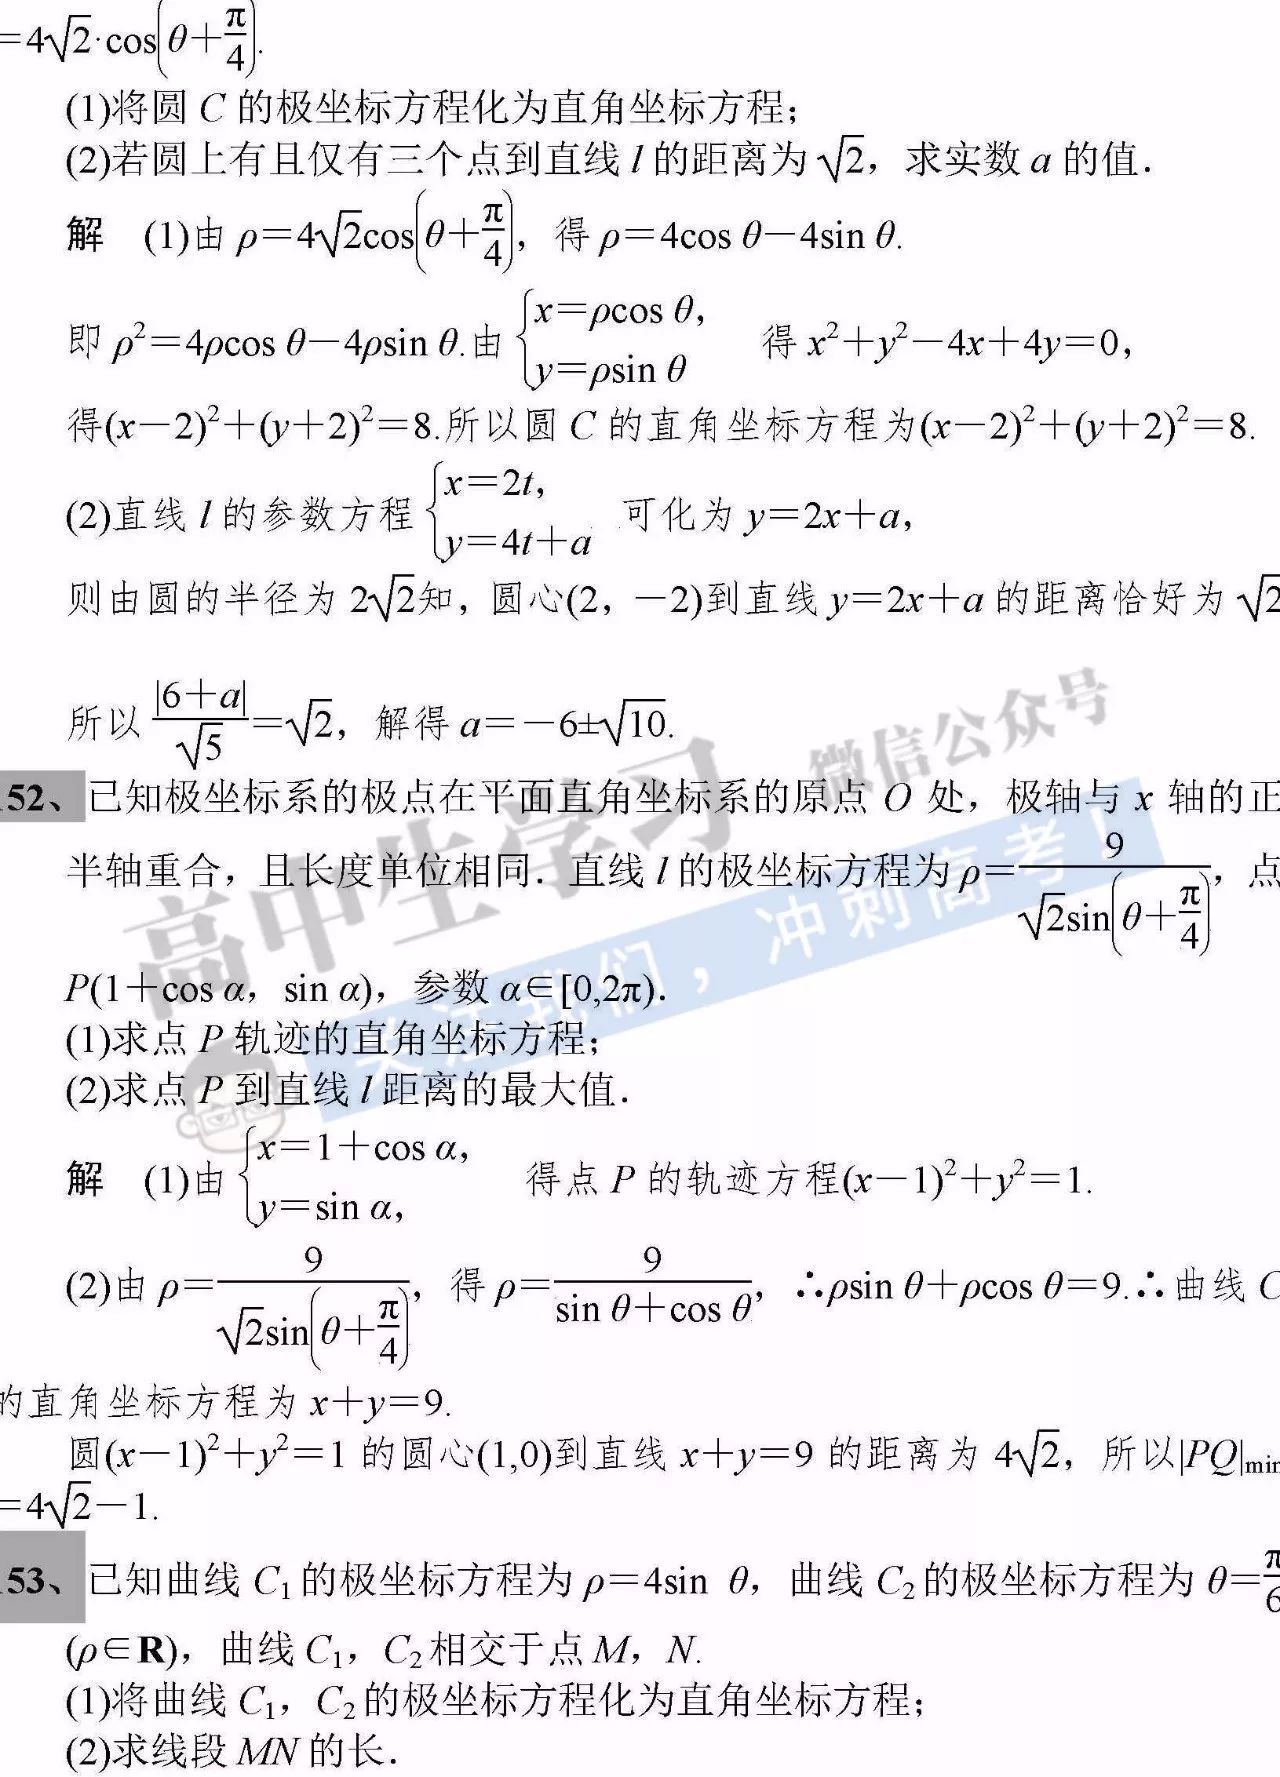 =4√2·cos(θ+π/4).
(1)将圆 C 的极坐标方程化为直角坐标方程；
(2)若圆上有且仅有三个点到直线 l 的距离为 √2，求实数 a 的值．
解 (1)由 ρ=4√2cos(θ+π/4)，得 ρ=4cos θ-4sin θ.
即 ρ²=4ρcos θ-4ρsin θ.由 {x=ρcos θ, y=ρsin θ 得 x²+y²-4x+4y=0,
得(x-2)²+(y+2)²=8.所以圆 C 的直角坐标方程为(x-2)²+(y+2)²=8.
(2)直线 l 的参数方程 {x=2t, y=4t+a 可化为 y=2x+a,
则由圆的半径为 2√2知，圆心(2，-2)到直线 y=2x+a 的距离恰好为 √2
所以 |6+a|/√5=√2，解得 a=-6±√10.
52、已知极坐标系的极点在平面直角坐标系的原点 O 处，极轴与 x 轴的正
半轴重合，且长度单位相同．直线 l 的极坐标方程为 ρ=9/(√2sin(θ+π/4))，点
P(1+cos α，sin α)，参数 α∈[0,2π)．
(1)求点 P 轨迹的直角坐标方程；
(2)求点 P 到直线 l 距离的最大值．
解 (1)由 {x=1+cos α, y=sin α, 得点 P 的轨迹方程(x-1)²+y²=1.
(2)由 ρ=9/(√2sin(θ+π/4))，得 ρ=9/(sin θ+cos θ)，∴ρsin θ+ρcos θ=9.∴曲线 C
的直角坐标方程为 x+y=9.
圆(x-1)²+y²=1 的圆心(1,0)到直线 x+y=9 的距离为 4√2，所以|PQ|min
=4√2-1.
53、已知曲线 C₁的极坐标方程为 ρ=4sin θ，曲线 C₂的极坐标方程为 θ=π/6
(ρ∈R)，曲线 C₁，C₂相交于点 M，N.
(1)将曲线 C₁，C₂的极坐标方程化为直角坐标方程；
(2)求线段 MN 的长．
高中生学习 微信公众号
关注我们，冲刺高考！